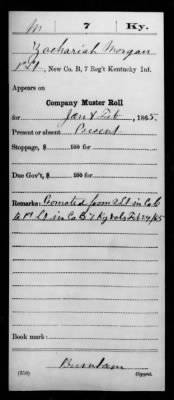 M 7 Ky.
Zachariah Morgan
1 Lt, New Co. B, 7 Reg't Kentucky Inf.
Appears on
Company Muster Roll
for Jan & Feb, 1865.
Present or absent Present
Stoppage, $ 100 for
Due Gov't, $ 100 for
Remarks: Promoted from 2 Lt in Co C
to 1 Lt in Co B 7 Ky Vols Feb 24/65
Book mark:
Burnham
(358) Copyist.